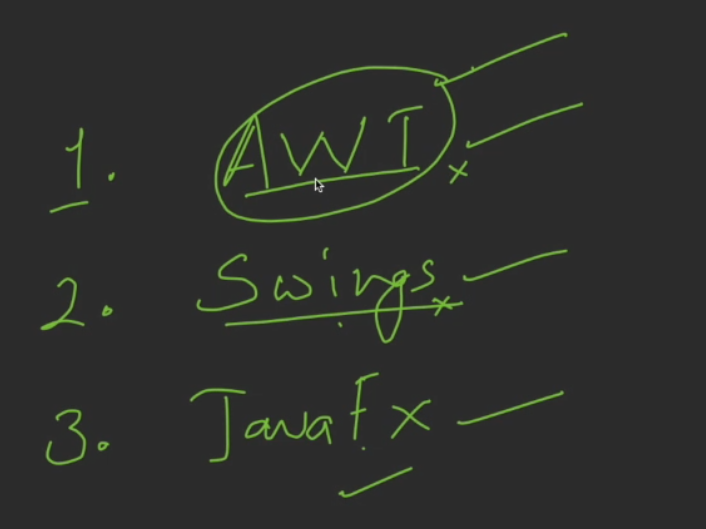 1. AWT
2. Swings
3. JavaFx